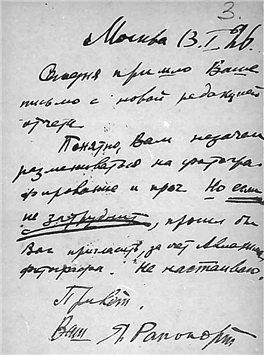 3.
Москва 13.I.26.
Сегодня пришло Ваше
письмо с новой редакцией
отчета.
Понятно, Вам незачем
размениваться на фотогра-
фирование и проч. Но если
не затруднит, просил бы
Вас пригласить за счет
фотографа. Не настаиваю.
Привет.
Ваш Я Рапопорт